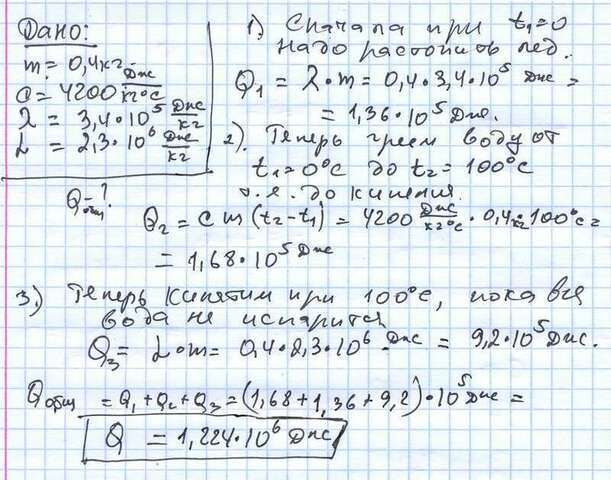 Дано:
m = 0,4 кг
c = 4200 Дж/кг°С
λ = 3,4·10⁵ Дж/кг
L = 2,3·10⁶ Дж/кг
Qобщ - ?
1) Сначала при t₁=0
надо растопить лед.
Q₁ = λ·m = 0,4·3,4·10⁵ Дж =
= 1,36·10⁵ Дж.
2). Теперь греем воду от
t₁=0°С до t₂=100°С
т.е. до кипения.
Q₂ = cm(t₂-t₁) = 4200 Дж/кг°С · 0,4кг·100°С =
= 1,68·10⁵ Дж
3.) Теперь кипятим при 100°С, пока вся
вода не испарится
Q₃ = L·m = 0,4·2,3·10⁶ Дж = 9,2·10⁵ Дж.
Qобщ = Q₁+Q₂+Q₃ = (1,68+1,36+9,2)·10⁵ Дж =
Q = 1,224·10⁶ Дж